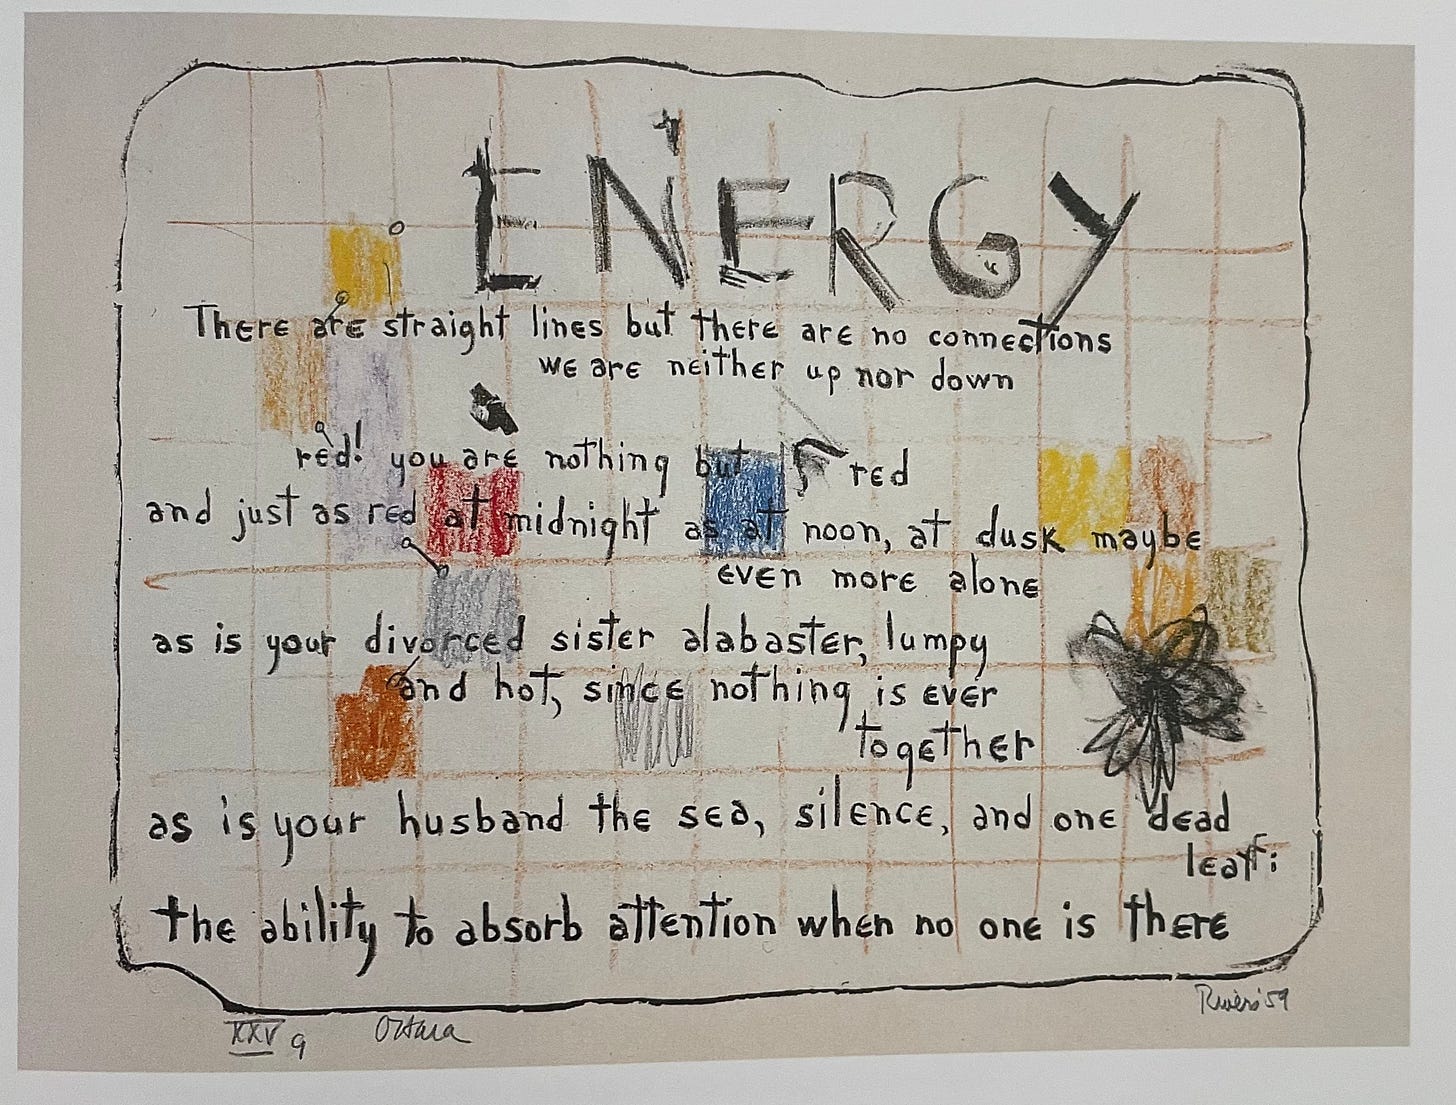 ENERGY
There are straight lines but there are no connections
we are neither up nor down
red! you are nothing but red
and just as red at midnight as at noon, at dusk maybe
even more alone
as is your divorced sister alabaster, lumpy
and hot, since nothing is ever
together
as is your husband the sea, silence, and one dead
leaf:
the ability to absorb attention when no one is there
Rivers '59
XXV 9 O'Hara